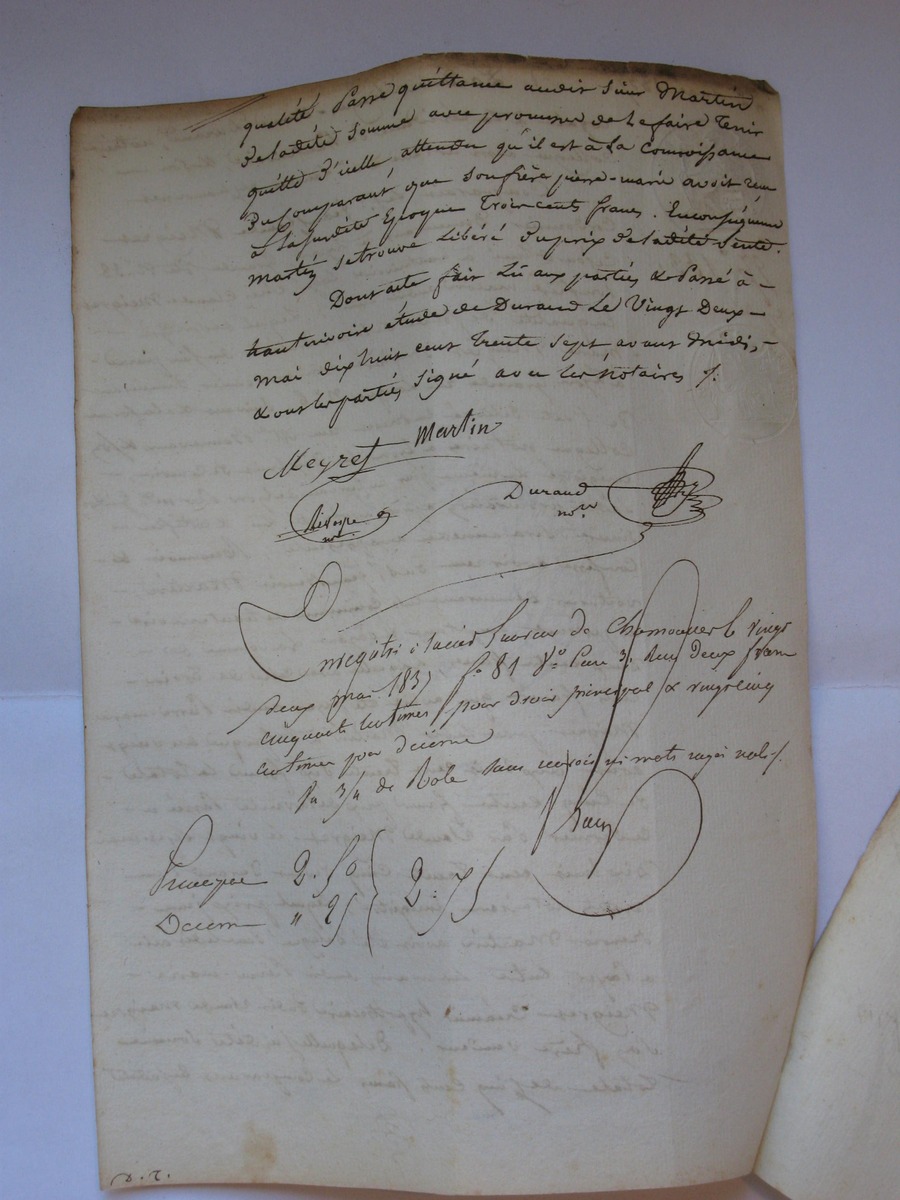 qualité Passe quittance audit Sieur Martin
de ladite Somme avec promesse de le faire Tenir
quitte d'icelle attendu qu'il est à la Connoissance
du Comparant que Son frère pierre-marie avoit reçu
à La susdite Epoque Trois cents francs. En conséquence
martin se trouve Libéré du prix de ladite vente.
Dont acte fait Lû aux parties & Passé à -
hauterivoire étude de Durand Le Vingt Deux -
mai dix huit cent Trente Sept avant Midi, -
& ont les parties Signé avec Les Notaires ./.
Meyret Martin
Durand
nore
Enregistré à Saint Laurent de Chamousset le vingt
deux mai 1837 fo 81 Vo Case 3, Reçu Deux francs
cinquante centimes pour droit principal & vingt cinq
centimes pour décime
Pa 3/4 de Role Sans renvois ni mots rayés nuls ./.
Principal 2.50
Décime " 25
2:75
D. R.